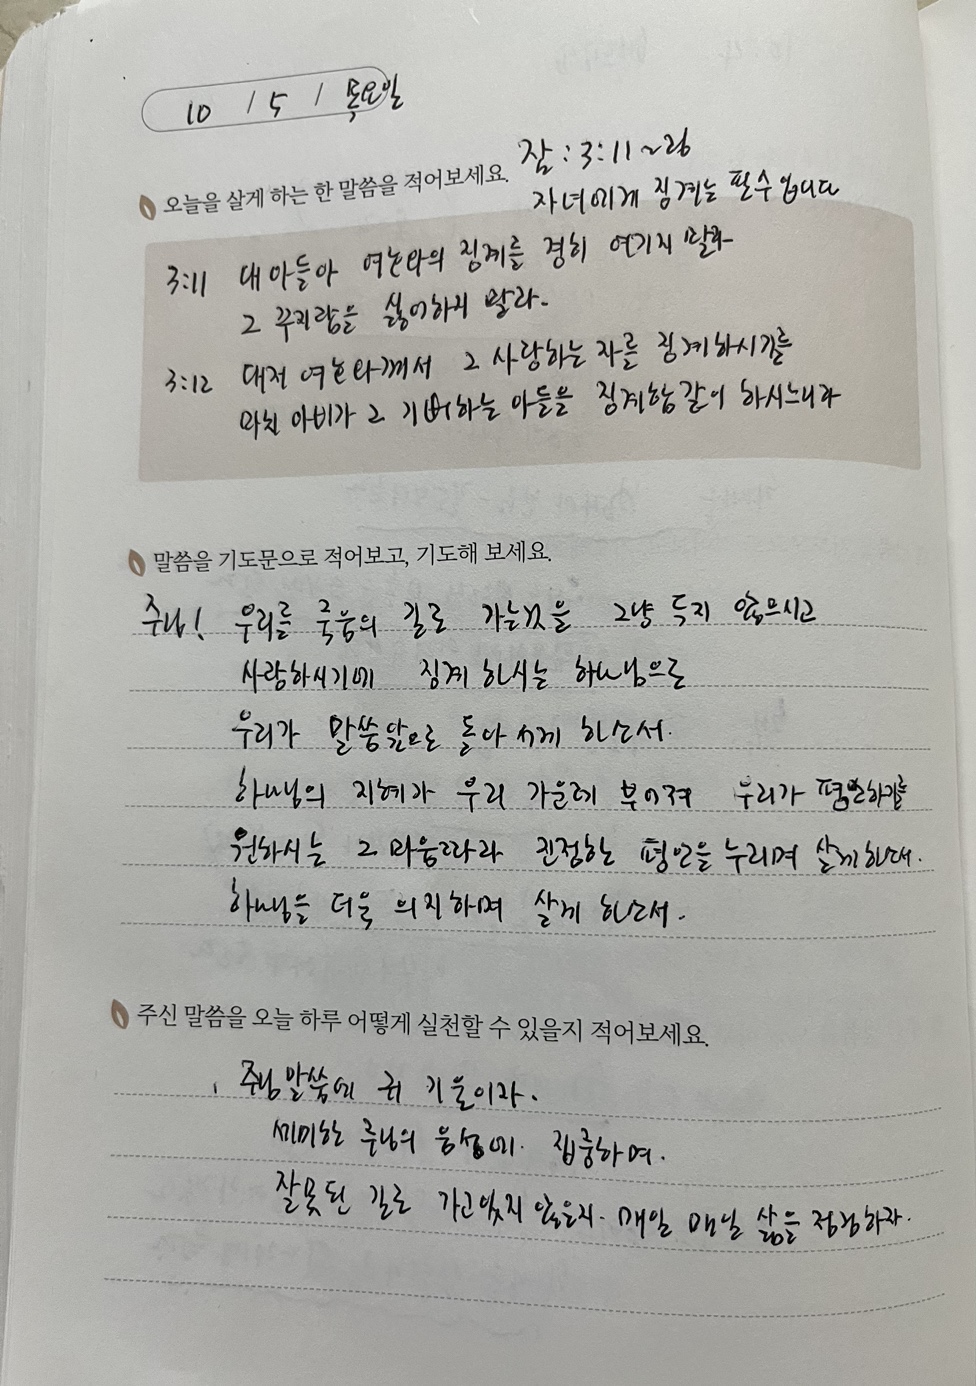 10 / 5 / 목요일
잠 : 3:11 ~ 26
오늘을 살게 하는 한 말씀을 적어보세요.
자녀에게 징계는 필수입니다
3:11 내 아들아 여호와의 징계를 경히 여기지 말라
그 꾸지람을 싫어하지 말라.
3:12 대저 여호와께서 그 사랑하는 자를 징계하시기를
마치 아비가 그 기뻐하는 아들을 징계함 같이 하시느니라
말씀을 기도문으로 적어보고, 기도해 보세요.
주님! 우리를 죽음의 길로 가는것을 그냥 두지 않으시고
사랑하시기에 징계 하시는 하나님으로
우리가 말씀앞으로 돌아 서게 하소서.
하나님의 지혜가 우리 가운데 부어져 우리가 평안하기를
원하시는 그 마음따라 진정한 평안을 누리며 살게 하소서.
하나님을 더욱 의지하며 살게 하소서.
주신 말씀을 오늘 하루 어떻게 실천할 수 있을지 적어보세요.
주님 말씀에 귀 기울이라.
세미한 주님의 음성에. 집중하며.
잘못된 길로 가고있지 않은지. 매일 매일 삶을 점검하자.